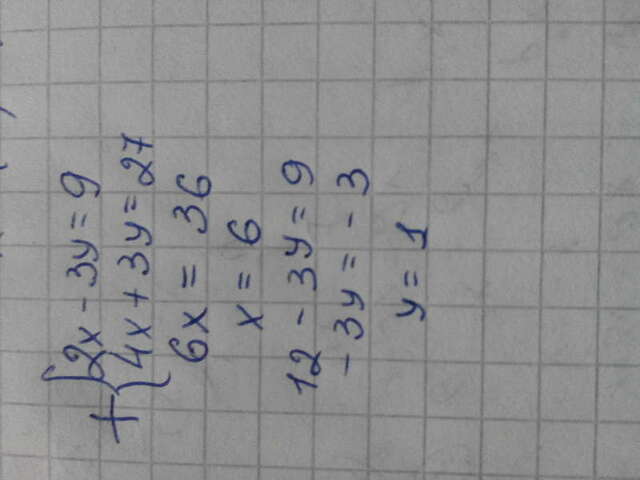 +{2x - 3y = 9
4x + 3y = 27
6x = 36
x = 6
12 - 3y = 9
- 3y = - 3
y = 1